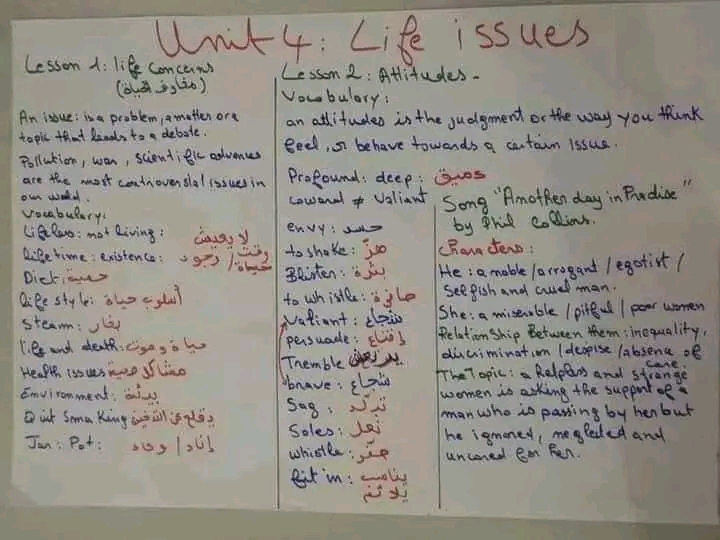 Unit 4: Life issues
Lesson 1: life concerns
(مخاوف الحياة)
An issue: is a problem, a matter or a
topic that leads to a debate.
Pollution, war, scientific advances
are the most controversial issues in
our world.
Vocabulary:
Lifeless: not living: لا يعيش
life time: existence: وقت / وجود
حياة
Diet: حمية
life style: أسلوب حياة
Steam: بخار
life and death: حياة وموت
Health issues: مشاكل صحية
Environment: بيئة
Quit Smoking
Jar: Pot: إناء / وعاء
Lesson 2: Attitudes -
Vocabulary:
an attitudes is the judgment or the way you think
feel, or behave towards a certain issue.
Profound: deep: عميق
coward ≠ Valiant
envy: حسد
to shake: هزّ
Blister: بثرة
to whistle: صافرة
Valiant: شجاع
persuade: إقناع
Tremble
brave: شجاع
Sag:
Soles: نعل
whistle: صفّر
fit in: يناسب
يلائم
Song "Another day in Pradise"
by Phil Collins.
Characters:
He: a noble / arrogant / egotist /
Selfish and cruel man.
She: a miserble / pitful / poor women
RelationShip Between them: inequality,
discrimination / despise / absence of
care.
The Topic: a helpless and strange
women is asking the support of a
man who is passing by her but
he ignored, neglected and
uncared for her.